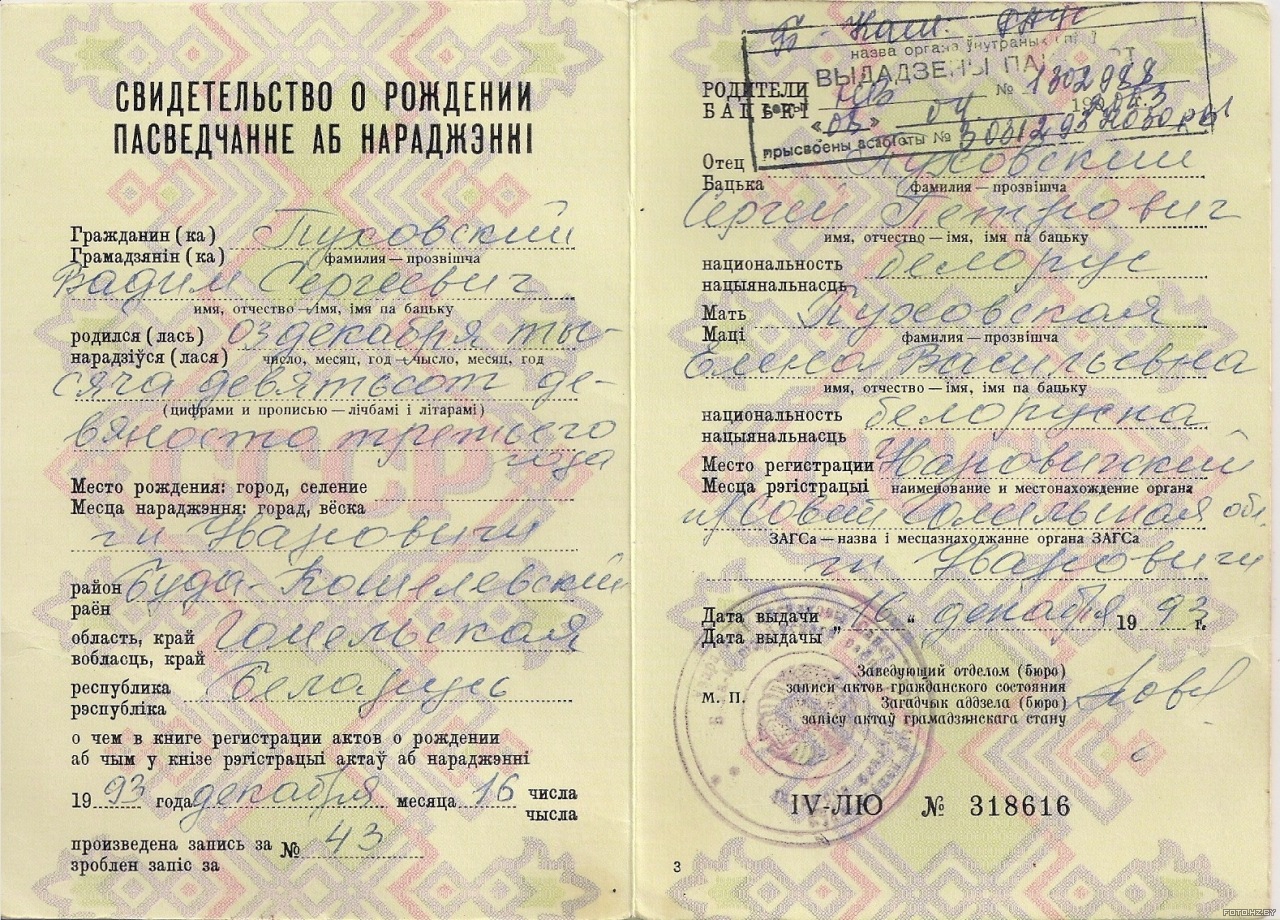 СВИДЕТЕЛЬСТВО О РОЖДЕНИИ
ПАСВЕДЧАННЕ АБ НАРАДЖЭННІ
Гражданин (ка) Пуховский
Грамадзянін (ка) фамилия — прозвішча
Вадим Сергеевич
имя, отчество — імя, імя па бацьку
родился (лась) 03 декабря ты-
нарадзіўся (лася) число, месяц, год — чысло, месяц, год
сяча девятьсот де-
(цифрами и прописью — лічбамі і літарамі)
вяносто третьего
года
СССР
Место рождения: город, селение
Месца нараджэння: горад, вёска
гп Уваровичи
район Буда-Кошелевский
раён
область, край Гомельская
вобласць, край
республика Беларусь
рэспубліка
о чем в книге регистрации актов о рождении
аб чым у кнізе рэгістрацыі актаў аб нараджэнні
19 93 года декабря месяца 16 числа
чысла
произведена запись за № 43
зроблен запіс за
Б-Каш.
назва органа ўнутраных
ВЫДАДЗЕНЫ ПА
РОДИТЕЛИ № 1302988
БАЦЬКІ
прысвоены асабісты №
Отец Пуховский
Бацька фамилия — прозвішча
Сергей Петрович
имя, отчество — імя, імя па бацьку
национальность белорус
нацыянальнасць
Мать Пуховская
Маці фамилия — прозвішча
Елена Васильевна
имя, отчество — імя, імя па бацьку
национальность белоруска
нацыянальнасць
Место регистрации Уваровичский
Месца рэгістрацыі наименование и местонахождение органа
п/совет Гомельская обл.
ЗАГСа — назва і месцазнаходжанне органа ЗАГСа
гп Уваровичи
Дата выдачи „16“ декабря 19 93 г.
Дата выдачы
Заведующий отделом (бюро)
М. П. записи актов гражданского состояния
Загадчык аддзела (бюро)
запісу актаў грамадзянскага стану
IV-ЛЮ № 318616
3
FOTO.HZ.BY